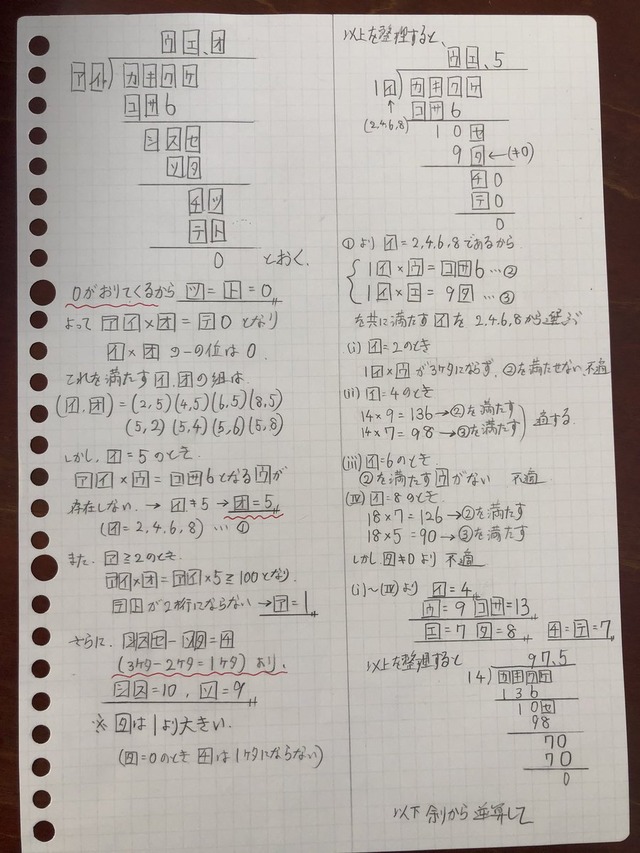 ウエ.オ
アイ)カキクケ
コサ6
シスセ
ソタ
チツ
テト
0 とおく.
0がおりてくるから ツ=ト=0
よって アイ×オ=テ0 となり
イ×オの一の位は0.
これを満たすイ,オの組は
(イ,オ)=(2,5)(4,5)(6,5)(8,5)
(5,2)(5,4)(5,6)(5,8)
しかし,イ=5のとき
アイ×ウ=コサ6となるウが
存在しない. → イ≠5 → オ=5
(イ=2,4,6,8) … ①
また. ア≧2のとき.
アイ×オ=アイ×5≧100となり.
テトが2桁にならない → ア=1
さらに. シスセ-ソタ=チ
(3ケタ-2ケタ=1ケタ)より,
シス=10, ソ=9
※ タは1より大きい.
(タ=0のとき チは1ケタにならない)
以上を整理すると、
ウエ.5
1イ)カキクケ
↑
(2,4,6,8)
コサ6
10セ
9タ ←(≠0)
チ0
テ0
0
①より イ=2,4,6,8であるから
1イ×ウ=コサ6 … ②
1イ×エ=9タ … ③
を共に満たすイを 2,4,6,8から選ぶ
(i) イ=2のとき
1イ×ウが3ケタにならず,②を満たせない.不適
(ii) イ=4のとき
14×9=136→②を満たす
14×7=98→③を満たす
適する.
(iii) イ=6のとき
②を満たすウがない 不適
(iv) イ=8のとき
18×7=126→②を満たす
18×5=90→③を満たす
しかしタ≠0より 不適
(i)~(iv)より イ=4
ウ=9 コサ=13
エ=7 タ=8 チ=テ=7
以上を整理すると
97.5
14)カキクケ
136
10セ
98
70
70
0
以下 余りから逆算して